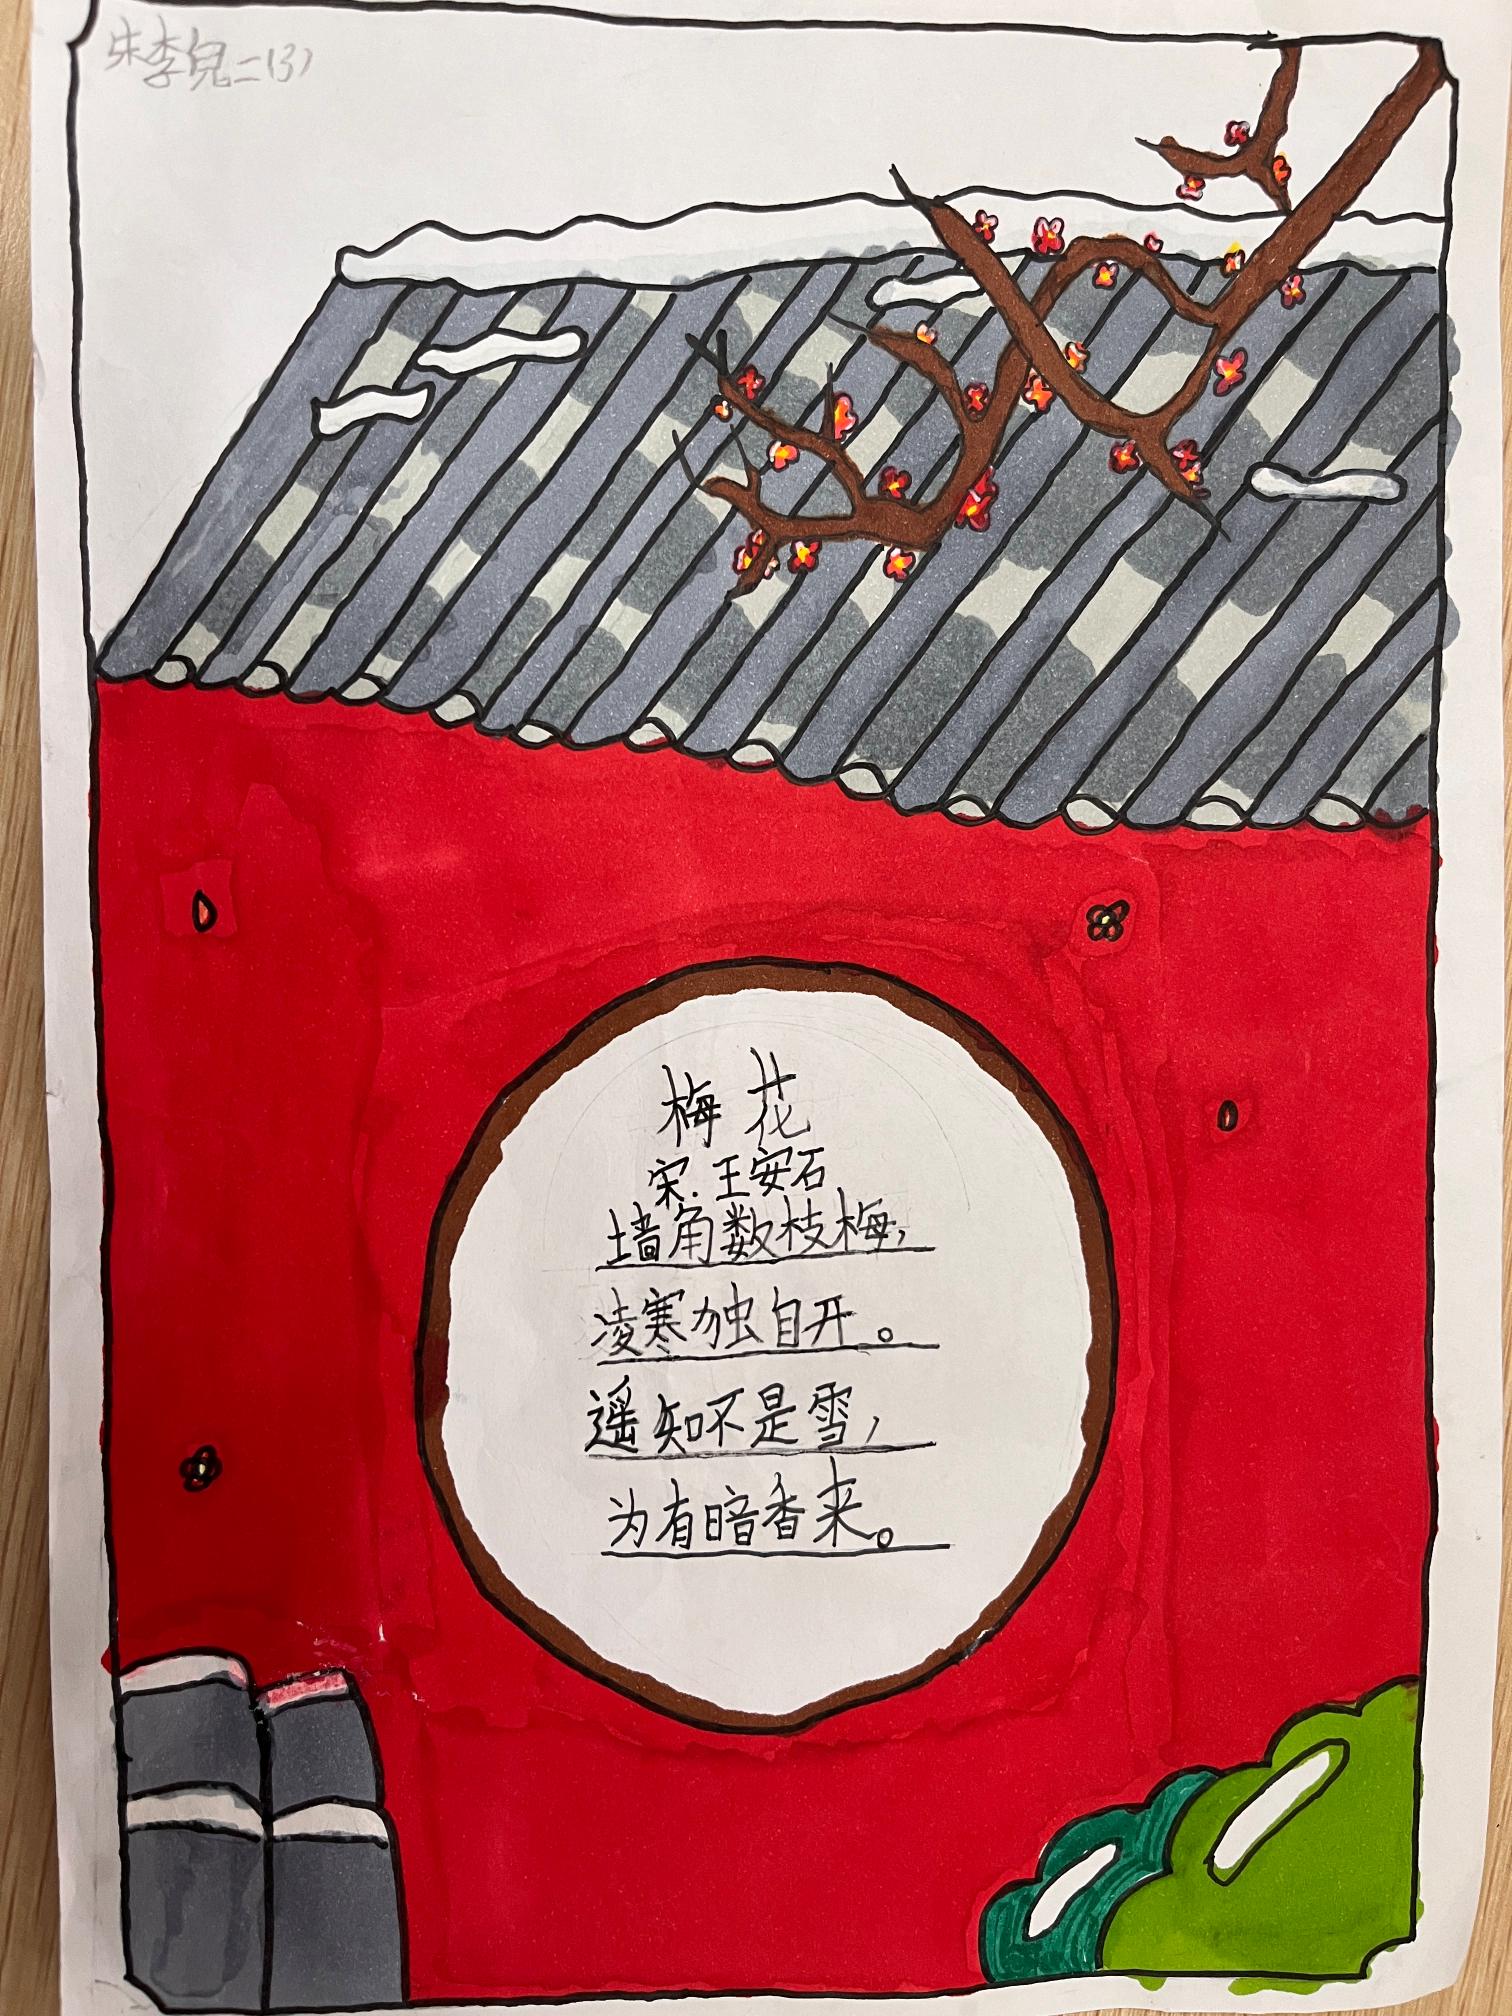 朱李倪二(3)
梅花
宋.王安石
墙角数枝梅,
凌寒独自开。
遥知不是雪,
为有暗香来。